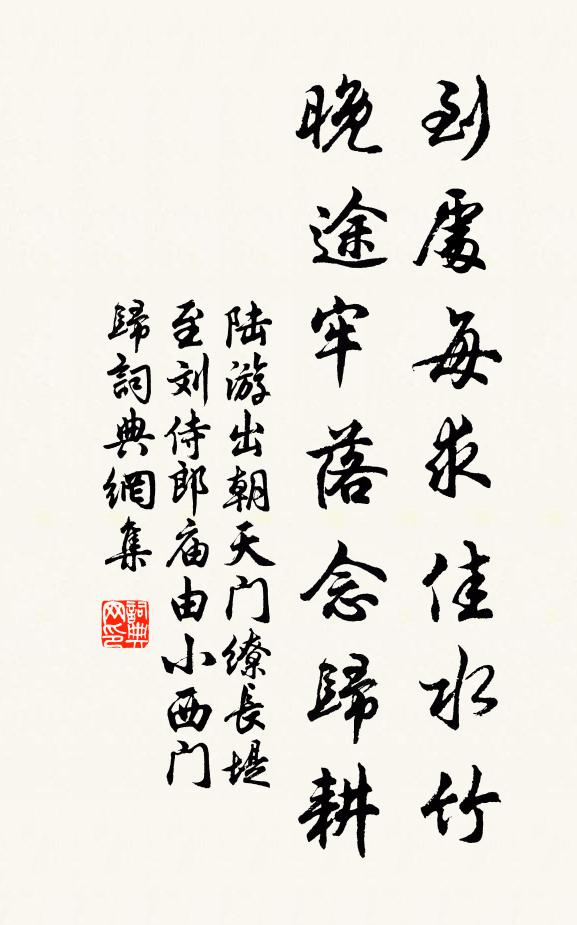 到處每求佳水竹
晚途牢落念歸耕
陆游出朝天门缭長堤
至刘侍郎庙由小西门
歸詞典網集
詞典
网印